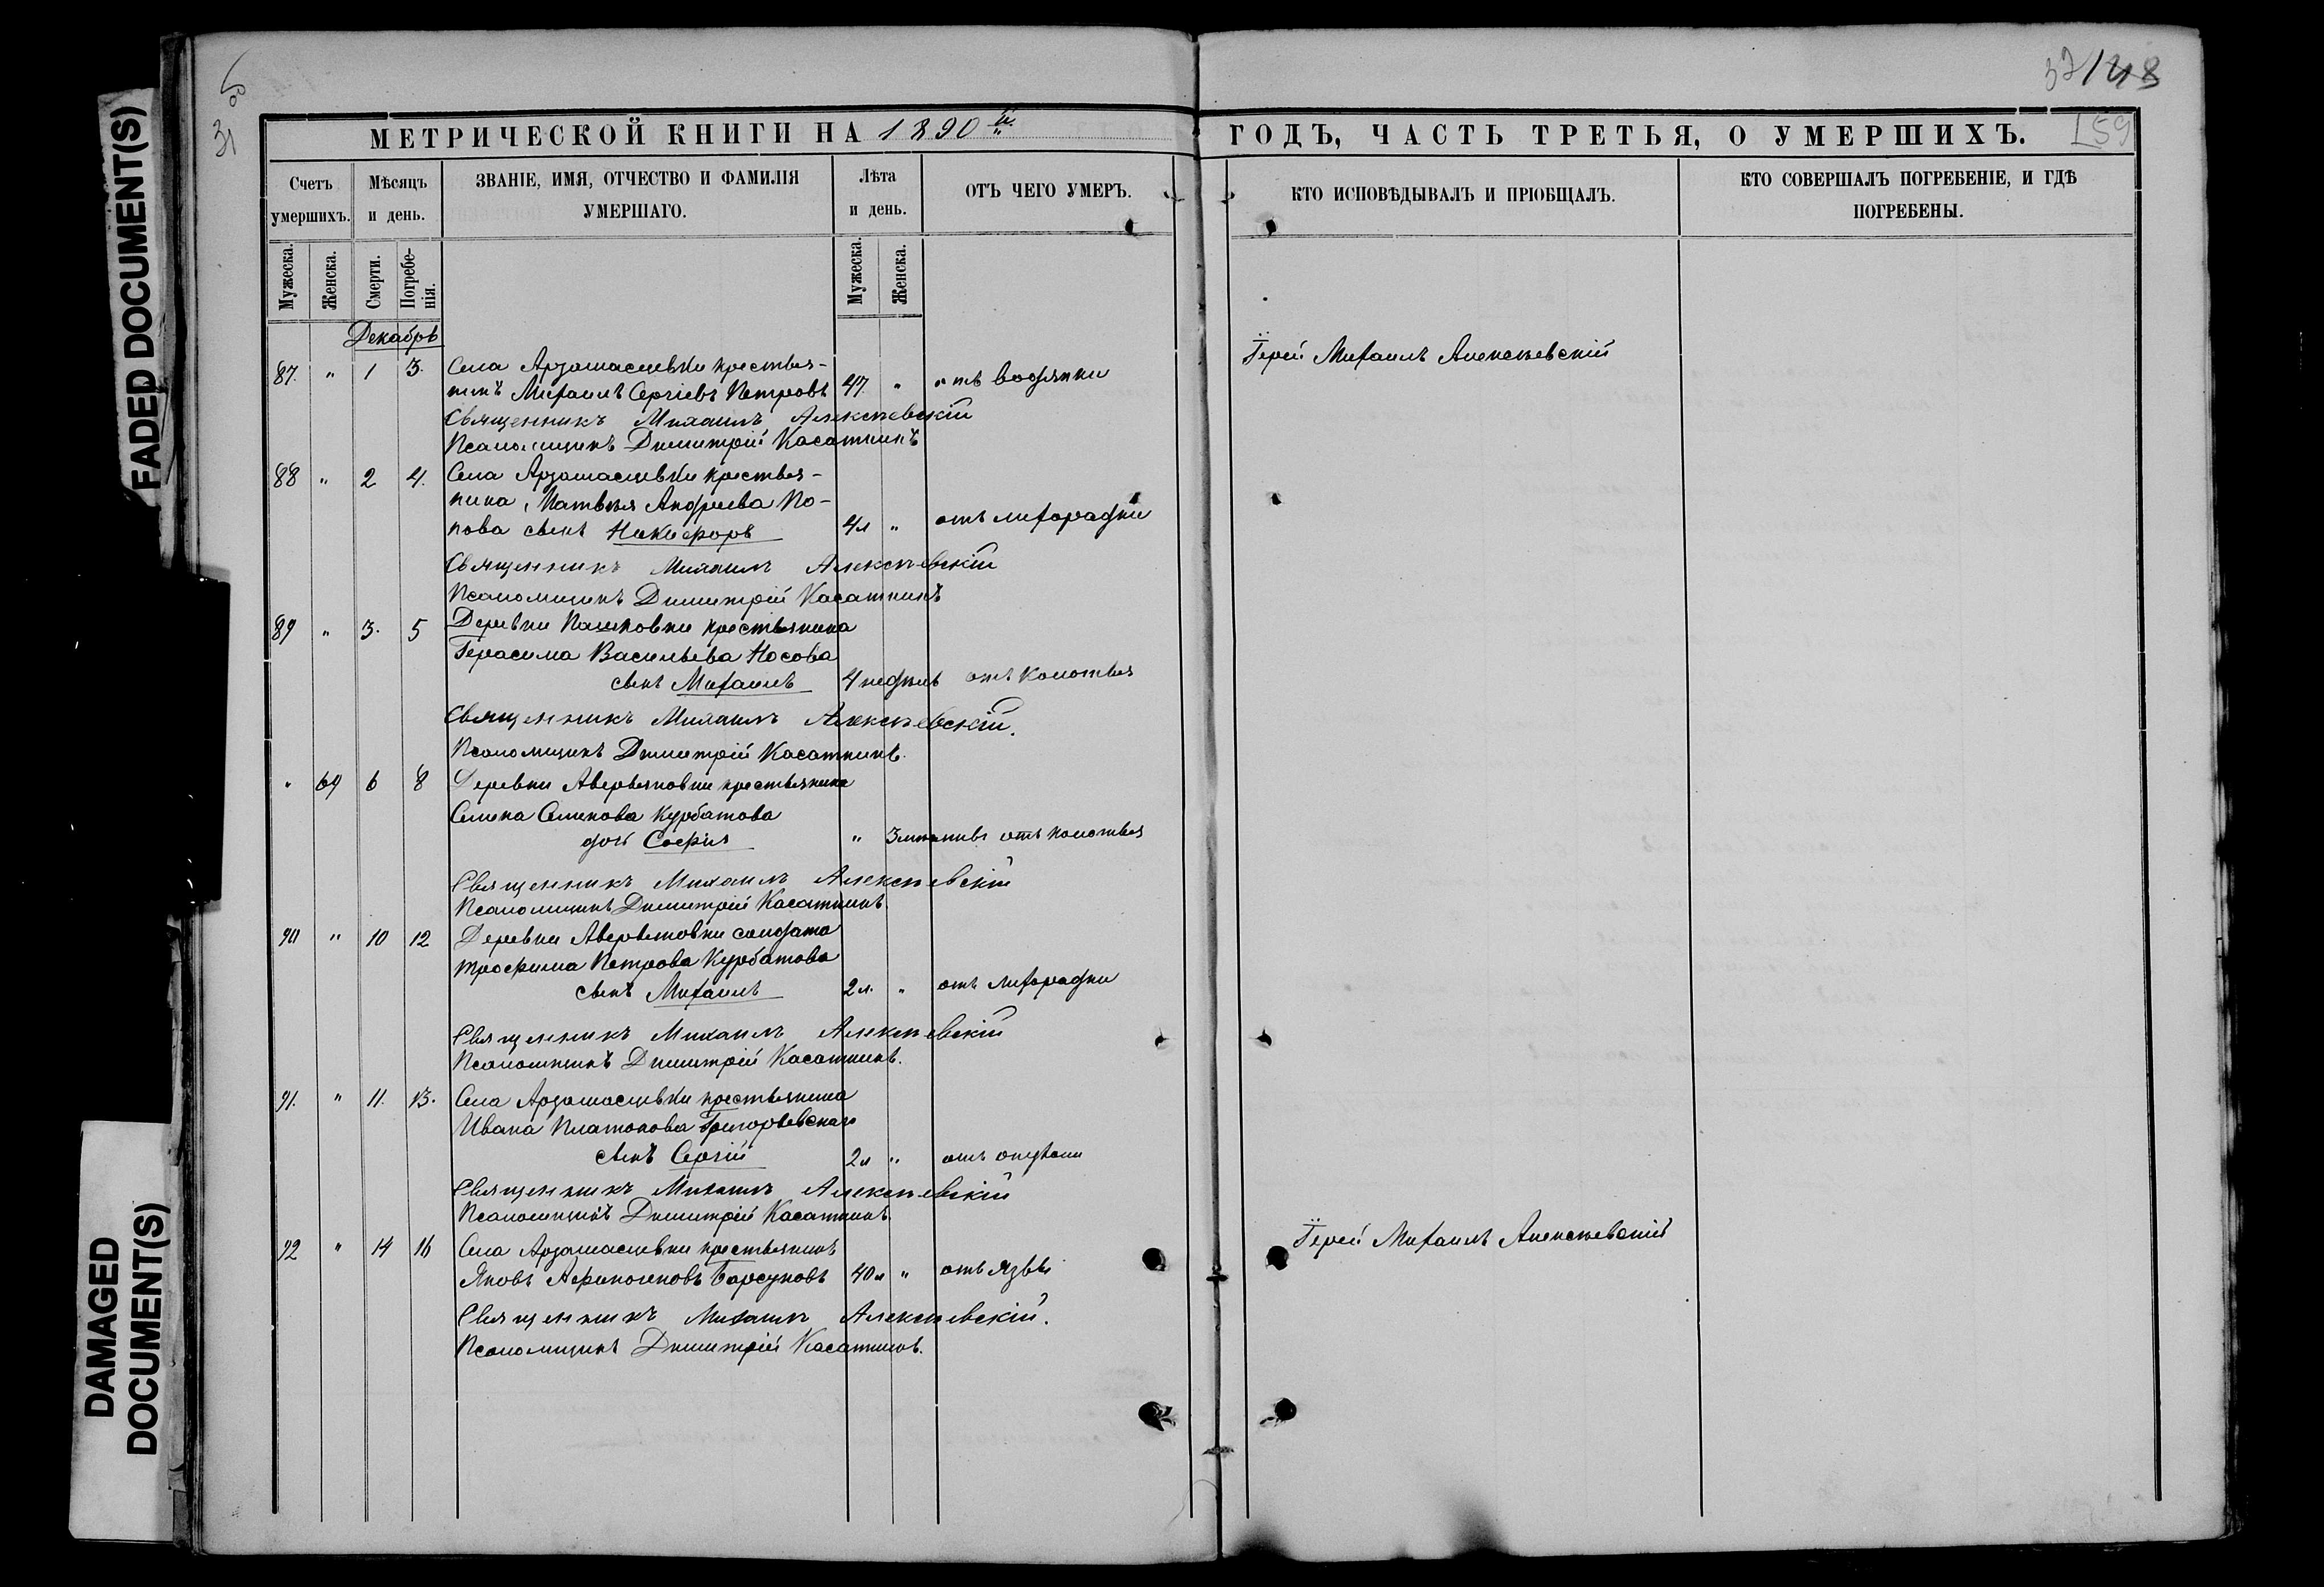 FADED DOCUMENT(S)
DAMAGED
DOCUMENT(S)
31
37/148
159
МЕТРИЧЕСКОЙ КНИГИ НА 1890й
ГОДЪ, ЧАСТЬ ТРЕТЬЯ, О УМЕРШИХЪ.
Счетъ умершихъ.
Мѣсяцъ и день.
ЗВАНІЕ, ИМЯ, ОТЧЕСТВО И ФАМИЛІЯ
УМЕРШАГО.
Лѣта и день.
ОТЪ ЧЕГО УМЕРЪ.
КТО ИСПОВѢДЫВАЛЪ И ПРІОБЩАЛЪ.
КТО СОВЕРШАЛЪ ПОГРЕБЕНІЕ, И ГДѢ
ПОГРЕБЕНЫ.
Мужеска. Женска. Смерти. Погребенія. Мужеска. Женска.
Декабрь
87. " 1 3. Села Арзамасцевки крестья-
нинъ Михаилъ Сергіевъ Петровъ 47. " отъ водянки Іерей Михаилъ Алексѣевскій
Священникъ Михаилъ Алексѣевскій
Псаломщикъ Димитрій Касаткинъ
88 " 2 4. Села Арзамасцевки крестья-
нина Матвѣя Андреева По-
пова сынъ Никифоръ 4л " отъ лихорадки
Священникъ Михаилъ Алексѣевскій
Псаломщикъ Димитрій Касаткинъ
89 " 3. 5 Деревни Пашковки крестьянина
Герасима Васильева Носова
сынъ Михаилъ 4 недѣль отъ колотья
Священникъ Михаилъ Алексѣевскій.
Псаломщикъ Димитрій Касаткинъ.
" 69 6 8 Деревни Аверьяновки крестьянина
Семена Семенова Курбатова
дочь Софія " отъ колотья
Священникъ Михаилъ Алексѣевскій
Псаломщикъ Димитрій Касаткинъ.
90 " 10 12 Деревни Аверьяновки солдата
Трофима Петрова Курбатова
сынъ Михаилъ 2л. " отъ лихорадки
Священникъ Михаилъ Алексѣевскій
Псаломщикъ Димитрій Касаткинъ.
91. " 11. 13. Села Арзамасцевки крестьянина
Ивана Платонова Григорьевскаго
сынъ Сергій 2л " отъ
Священникъ Михаилъ Алексѣевскій
Псаломщикъ Димитрій Касаткинъ.
92 " 14 16 Села Арзамасцевки крестьянинъ Іерей Михаилъ Алексѣевскій
Яковъ Афиногеновъ Барсуковъ 40л " отъ язвы
Священникъ Михаилъ Алексѣевскій.
Псаломщикъ Димитрій Касаткинъ.